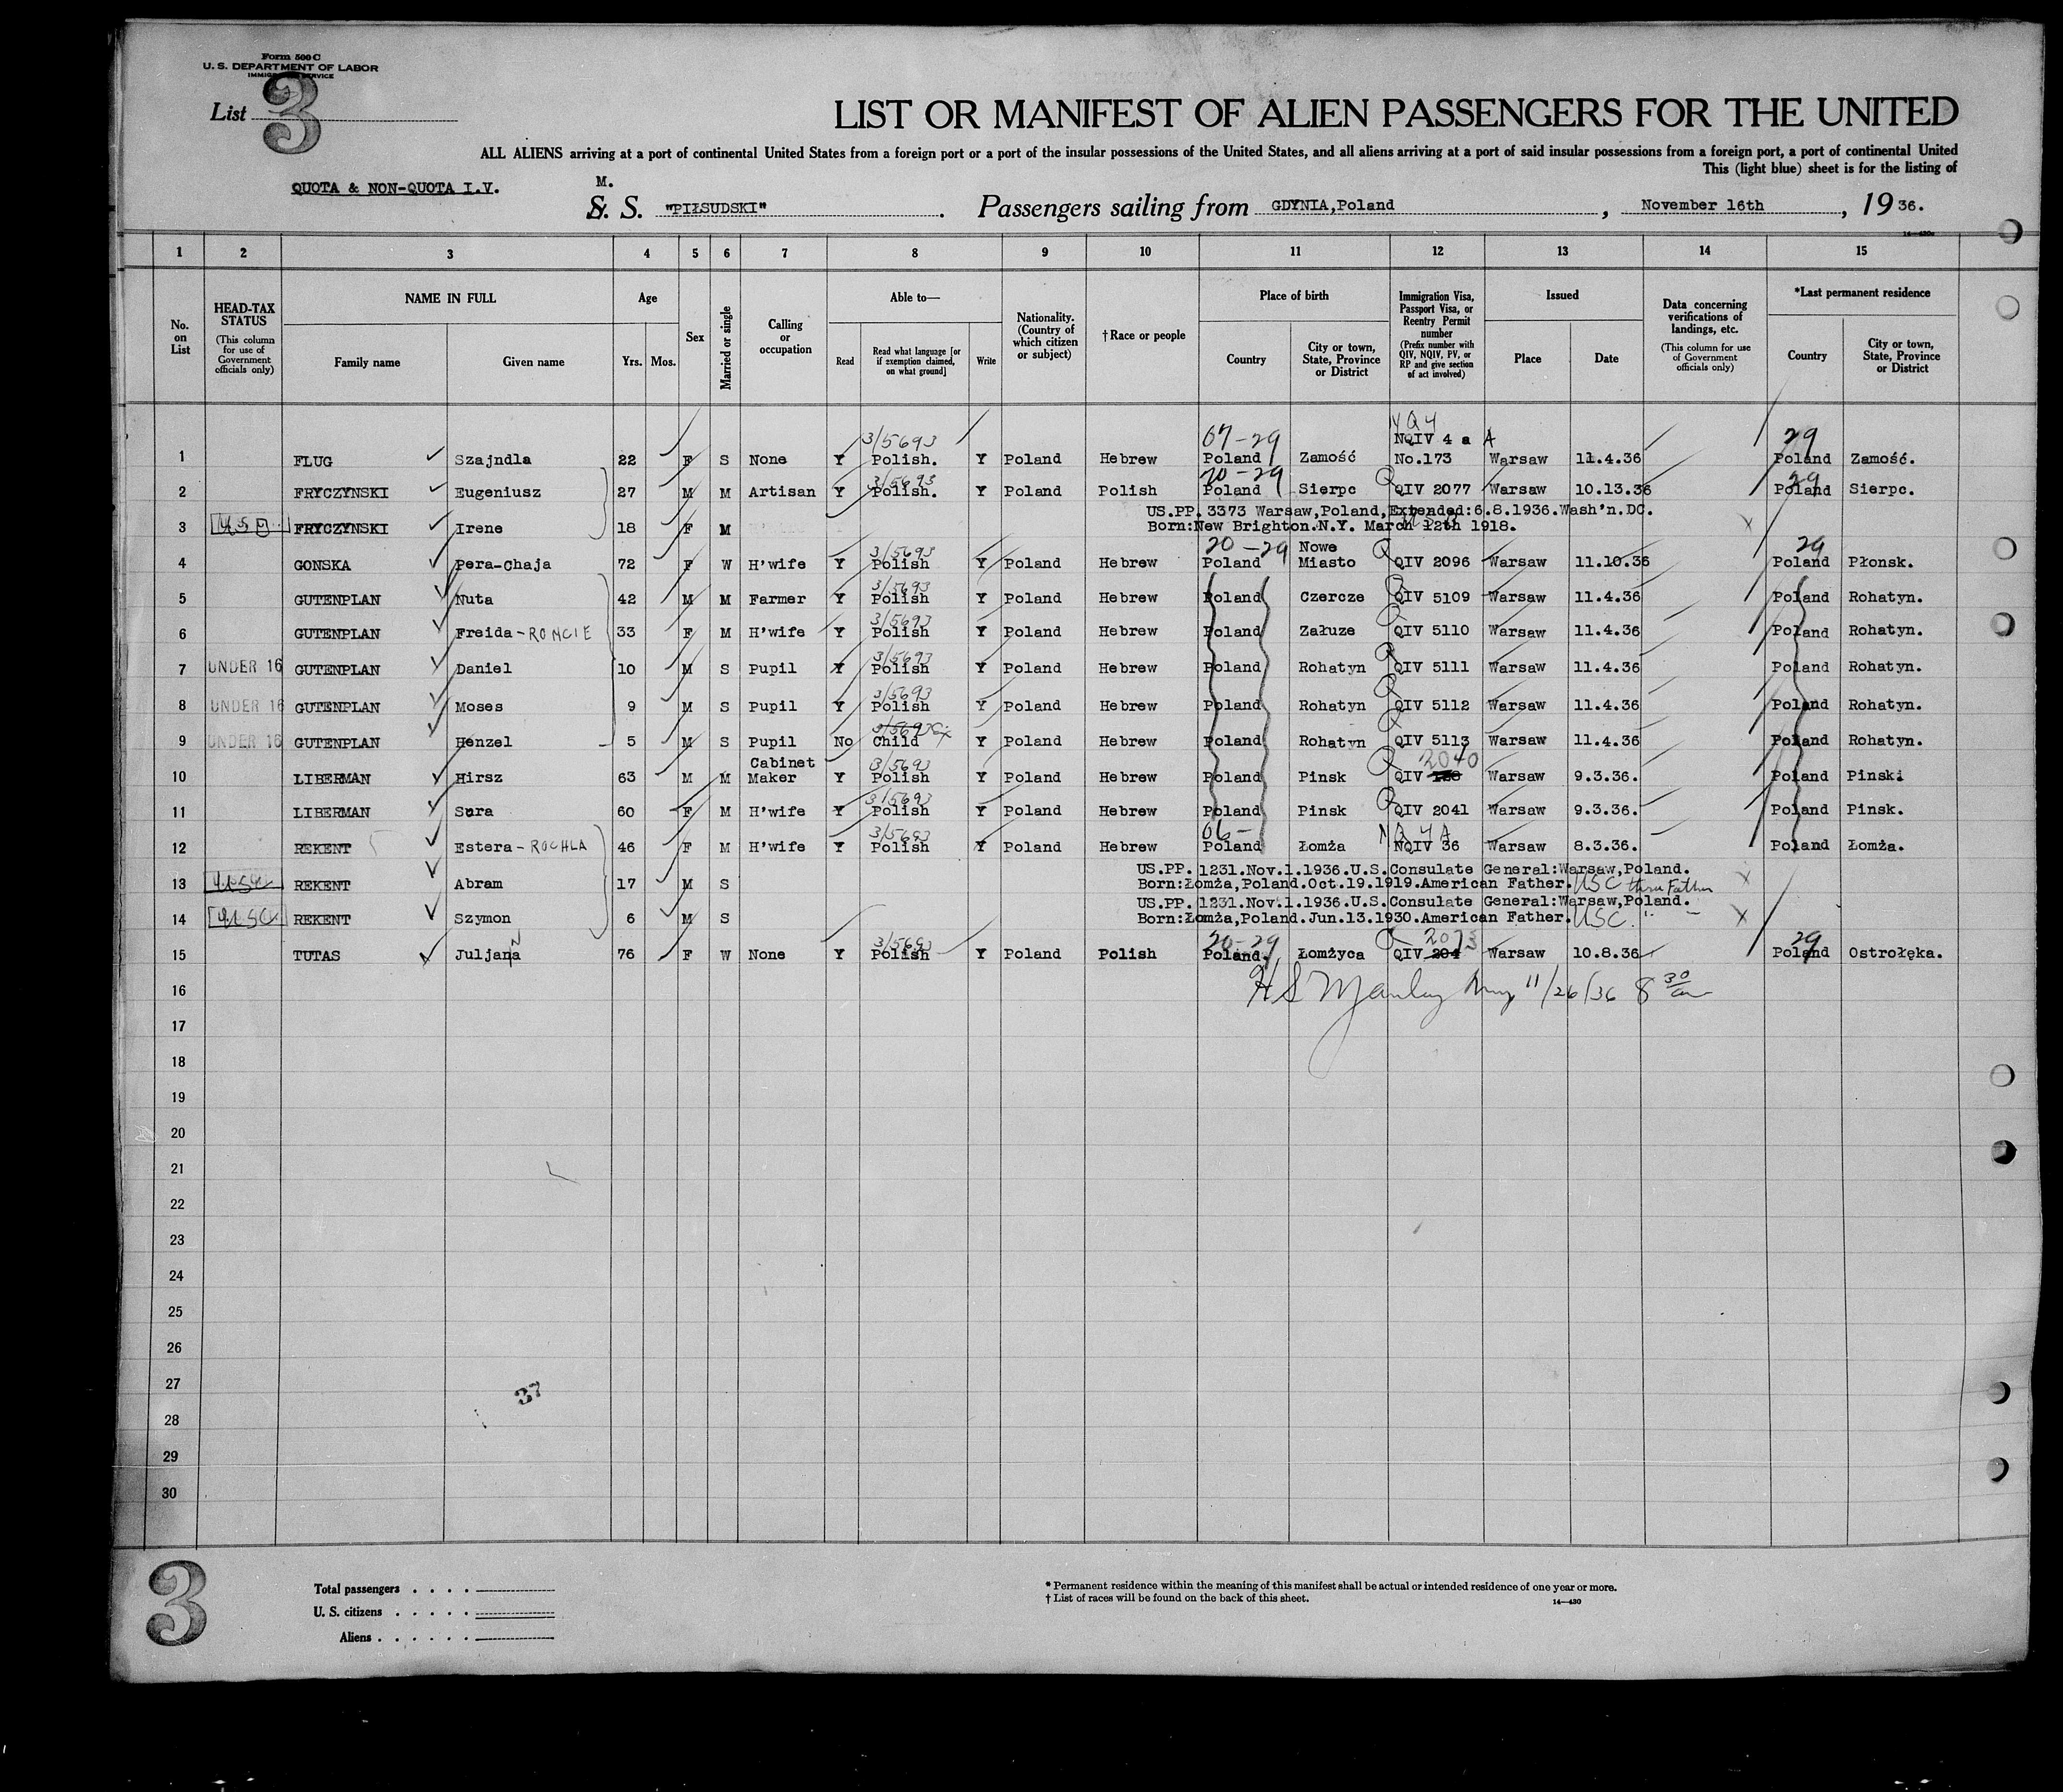 Form 500 C
U. S. DEPARTMENT OF LABOR
IMMIGRATION SERVICE
List 3
LIST OR MANIFEST OF ALIEN PASSENGERS FOR THE UNITED
ALL ALIENS arriving at a port of continental United States from a foreign port or a port of the insular possessions of the United States, and all aliens arriving at a port of said insular possessions from a foreign port, a port of continental United
This (light blue) sheet is for the listing of
QUOTA & NON-QUOTA I.V.
M.
S. S. "PIŁSUDSKI". Passengers sailing from GDYNIA,Poland, November 16th, 19 36.
14—430
1 2 3 4 5 6 7 8 9 10 11 12 13 14 15
No. on List
HEAD-TAX STATUS (This column for use of Government officials only)
NAME IN FULL
Family name Given name
Age
Yrs. Mos.
Sex
Married or single
Calling or occupation
Able to—
Read Read what language [or if exemption claimed, on what ground] Write
Nationality. (Country of which citizen or subject)
† Race or people
Place of birth
Country City or town, State, Province or District
Immigration Visa, Passport Visa, or Reentry Permit number (Prefix number with QIV, NQIV, PV, or RP and give section of act involved)
Issued
Place Date
Data concerning verifications of landings, etc. (This column for use of Government officials only)
*Last permanent residence
Country City or town, State, Province or District
3/5693 07-29 NQ4 NQIV 4 a A 29
1 FLUG Szajndla 22 F S None Y Polish. Y Poland Hebrew Poland Zamość No.173 Warsaw 11.4.36 Poland Zamość.
3/5693 20-29 Q 29
2 FRYCZYNSKI Eugeniusz 27 M M Artisan Y Polish. Y Poland Polish Poland Sierpc QIV 2077 Warsaw 10.13.36 Poland Sierpc.
US.PP. 3373 Warsaw,Poland,Extended:6.8.1936.Wash'n.DC.
3 FRYCZYNSKI Irene 18 F M Born:New Brighton.N.Y. March 12th 1918.
3/5693 20-29 Nowe Q 29
4 GONSKA Pera-Chaja 72 F W H'wife Y Polish Y Poland Hebrew Poland Miasto QIV 2096 Warsaw 11.10.36 Poland Płonsk.
3/5693 Q
5 GUTENPLAN Nuta 42 M M Farmer Y Polish Y Poland Hebrew Poland Czercze QIV 5109 Warsaw 11.4.36 Poland Rohatyn.
3/5693 Q
6 GUTENPLAN Freida-RONCIE 33 F M H'wife Y Polish Y Poland Hebrew Poland Załuze QIV 5110 Warsaw 11.4.36 Poland Rohatyn.
3/5693 Q
7 UNDER 16 GUTENPLAN Daniel 10 M S Pupil Y Polish Y Poland Hebrew Poland Rohatyn QIV 5111 Warsaw 11.4.36 Poland Rohatyn.
3/5693 Q
8 UNDER 16 GUTENPLAN Moses 9 M S Pupil Y Polish Y Poland Hebrew Poland Rohatyn QIV 5112 Warsaw 11.4.36 Poland Rohatyn.
3/5693 Q
9 UNDER 16 GUTENPLAN Henzel 5 M S Pupil No Child Y Poland Hebrew Poland Rohatyn QIV 5113 Warsaw 11.4.36 Poland Rohatyn.
Cabinet 3/5693 Q 2040
10 LIBERMAN Hirsz 63 M M Maker Y Polish Y Poland Hebrew Poland Pinsk QIV Warsaw 9.3.36. Poland Pinski
3/5693 Q
11 LIBERMAN Sura 60 F M H'wife Y Polish Y Poland Hebrew Poland Pinsk QIV 2041 Warsaw 9.3.36. Poland Pinsk.
3/5693 06- NQ 4A
12 REKENT Estera-ROCHLA 46 F M H'wife Y Polish Y Poland Hebrew Poland Łomża NQIV 36 Warsaw 8.3.36. Poland Łomża.
US.PP. 1231.Nov.1.1936.U.S.Consulate General:Warsaw,Poland.
13 USC REKENT Abram 17 M S Born:Łomża,Poland.Oct.19.1919.American Father. USC thru Father
US.PP. 1231.Nov.1.1936.U.S.Consulate General:Warsaw,Poland.
14 USC REKENT Szymon 6 M S Born:Łomża,Poland.Jun.13.1930.American Father. USC. "
3/5693 20-29 Q 2073 29
15 TUTAS Juljana 76 F W None Y Polish Y Poland Polish Poland. Łomżyca QIV 204 Warsaw 10.8.36 Poland Ostrołęka.
16 H S Manley 11/26/36 8 30 am
17
18
19
20
21
22
23
24
25
26
27
37
28
29
30
3
Total passengers . . . .
U. S. citizens . . . . .
Aliens . . . . . .
* Permanent residence within the meaning of this manifest shall be actual or intended residence of one year or more.
† List of races will be found on the back of this sheet.
14—430